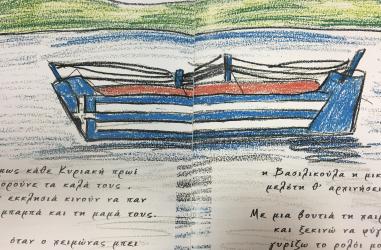 κάθε Κυριακή πρωί
τα καλά τους .
εκκλησία κινούν να παν
μπαμπά και τη μαμά τους.
όταν ο χειμώνας μπει
η Βασιλικούλα η
μελέτη θ' αρχινήσει
Με μια βουτιά τη
και ξεκινώ να
γυρίζω το ρολόι